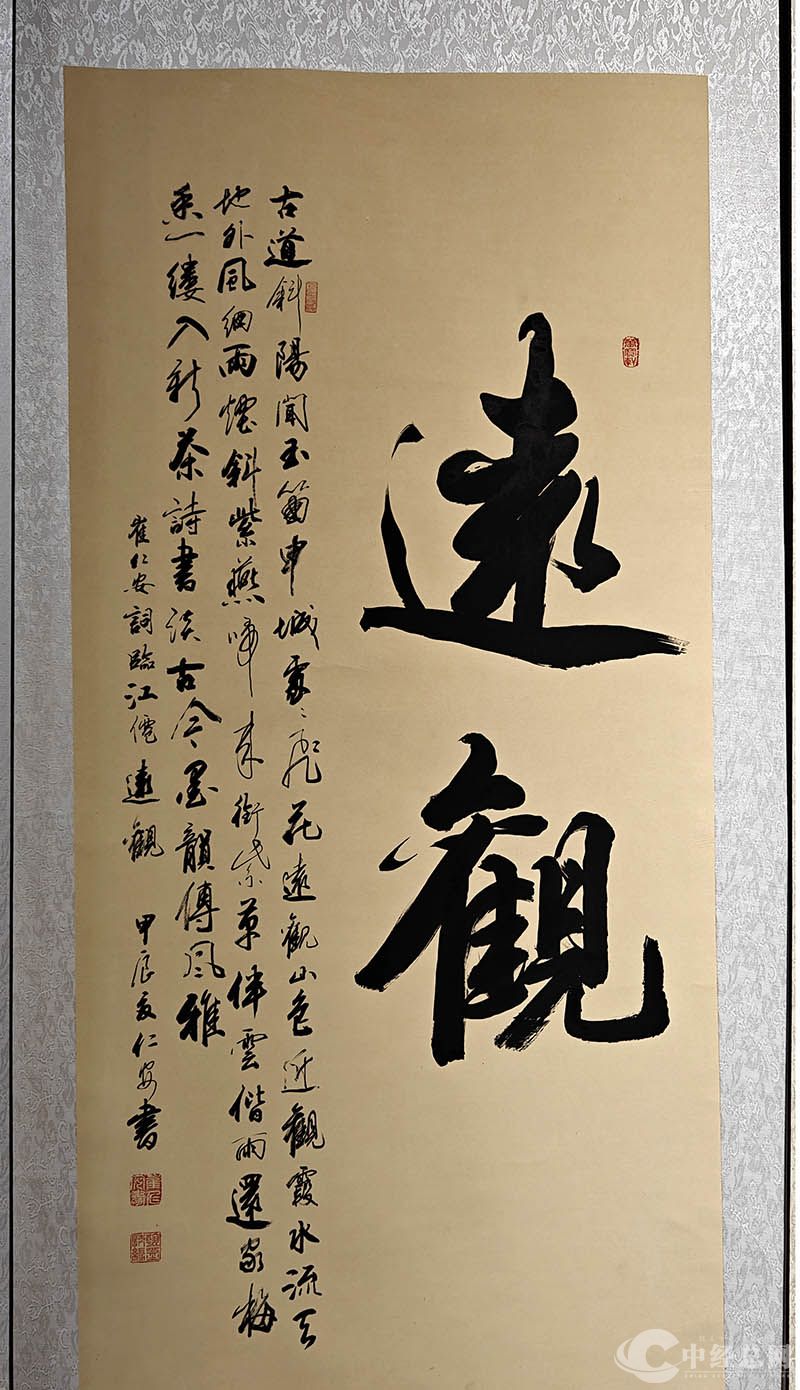 遠觀
古道斜陽聞玉笛申城處〻飛花遠觀山色近觀霞水流天
地外風細雨煙斜紫燕啼來銜紫草伴雲偕雨還家梅
香一縷入新茶詩書談古今墨韻傳風雅
崔仁安詞臨江僊遠觀 甲辰夏仁安書
中经总网